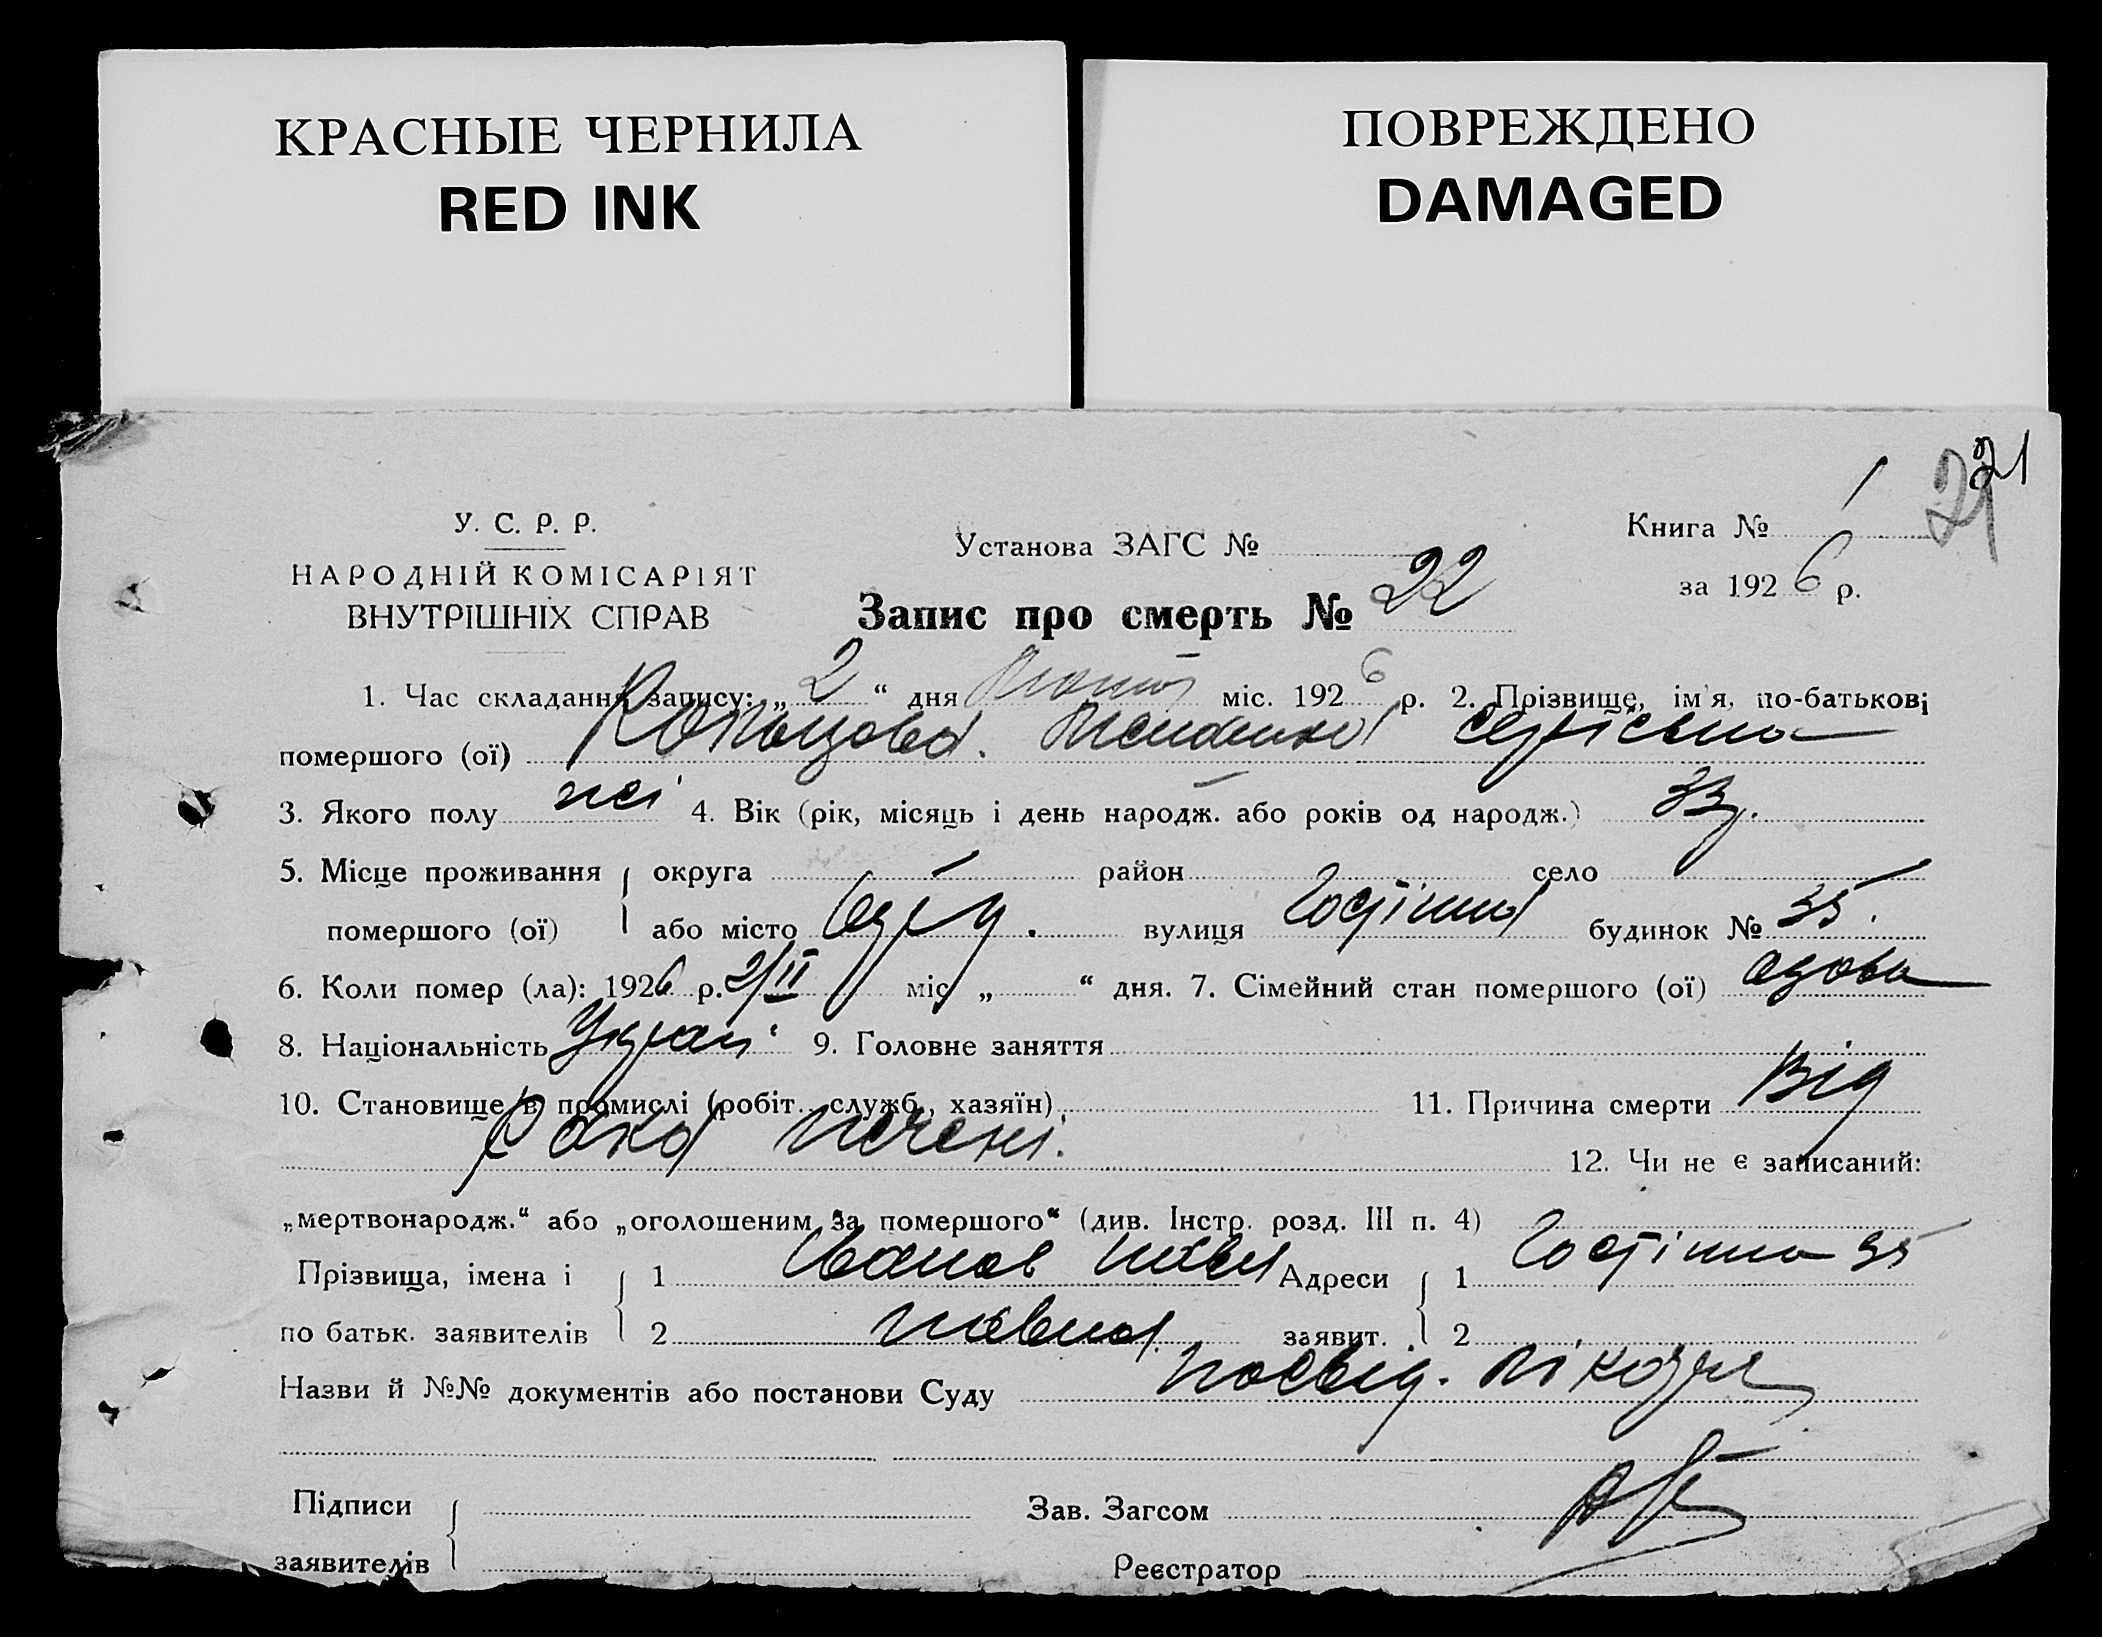 КРАСНЫЕ ЧЕРНИЛА
RED INK
ПОВРЕЖДЕНО
DAMAGED
21
У. С. Р. Р.
НАРОДНІЙ КОМІСАРІЯТ
ВНУТРІШНІХ СПРАВ
Установа ЗАГС №
Книга № 1
за 1926 р.
Запис про смерть № 22
1. Час складання запису: „ 2 “ дня міс. 1926 р. 2. Прізвище, ім'я, по-батькові
помершого (ої)
3. Якого полу 4. Вік (рік, місяць і день народж. або років од народж.)
5. Місце проживання округа район село
помершого (ої) або місто вулиця будинок № 35.
6. Коли помер (ла): 1926 р. 2/II міс „ “ дня. 7. Сімейний стан помершого (ої)
8. Національність 9. Головне заняття
10. Становище в промислі (робіт., служб., хазяїн) 11. Причина смерти Від
Рака печені. 12. Чи не є записаний:
„мертвонародж.“ або „оголошеним за помершого“ (див. Інстр. розд. III п. 4)
Прізвища, імена і 1 Іванов Адреси 1 35
по батьк. заявителів 2 заявит. 2
Назви й №№ документів або постанови Суду
Підписи Зав. Загсом
заявителів Реєстратор